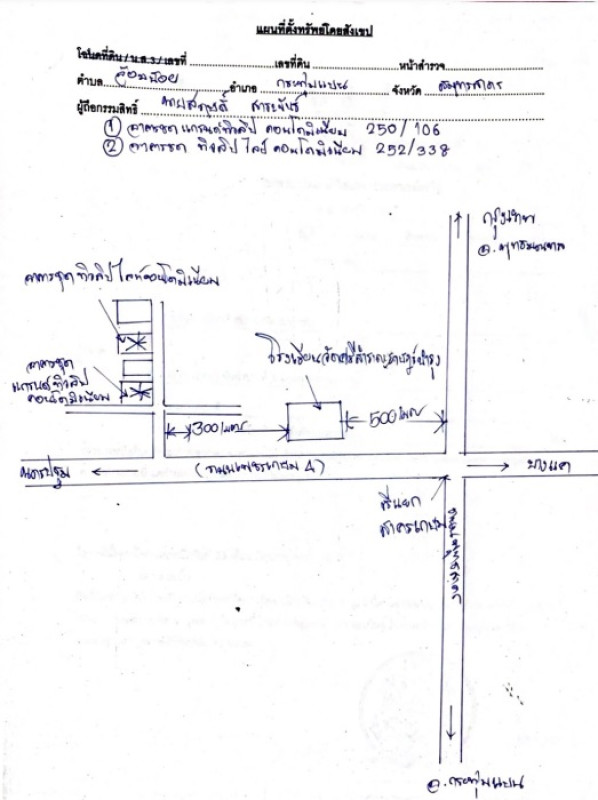 แผนที่ตั้งทรัพย์โดยสังเขป
โฉนดที่ดิน/น.ส.3/เลขที่ เลขที่ดิน หน้าสำรวจ
ตำบล อ้อมน้อย อำเภอ กระทุ่มแบน จังหวัด สมุทรสาคร
ผู้ถือกรรมสิทธิ์
① อาคารชุด แกรนด์ทิวลิป คอนโดมิเนียม 250/106
② อาคารชุด ทิวลิป ไลป์ คอนโดมิเนียม 252/338
กรุงเทพ
อ. พุทธมณฑล
อาคารชุด ทิวลิป ไลท์คอนโดมิเนียม
อาคารชุด
แกรนด์ ทิวลิป
คอนโดมิเนียม
300 เมตร
500 เมตร
นครปฐม
(ถนนเพชรเกษม 4)
บางแค
สี่แยก
สาครเกษม
อ. กระทุ่มแบน